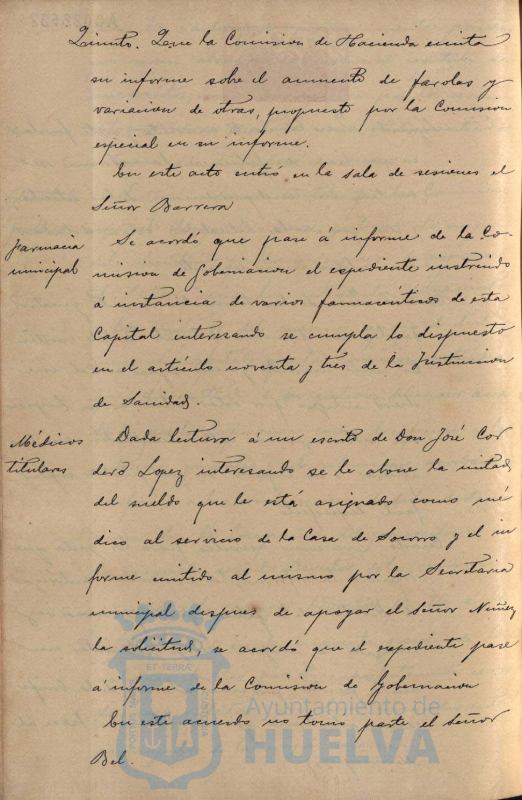 Quinto. Que la Comision de Hacienda emita
su informe sobre el aumento de farolas y
variacion de otras, propuesto por la Comision
especial en su informe.
En este acto entró en la sala de sesiones el
Señor Barrera
Farmacia
municipal
Se acordó que pase á informe de la Co-
mision de Gobernacion el espediente instruido
á instancia de varios farmacéuticos de esta
Capital interesando se cumpla lo dispuesto
en el artículo noventa y tres de la Instruccion
de Sanidad.
Médicos
titulares
Dada lectura á un escrito de Don José Cor
dero Lopez interesando se le abone la mitad
del sueldo que le está asignado como mé
dico al servicio de la Casa de Socorro y el in
forme emitido al mismo por la Secretaria
municipal despues de apoyar el Señor Nuñez
la solicitud, se acordó que el espediente pase
á informe de la Comision de Gobernacion
En este acuerdo no tomó parte el señor
Bel.
Ayuntamiento de
HUELVA